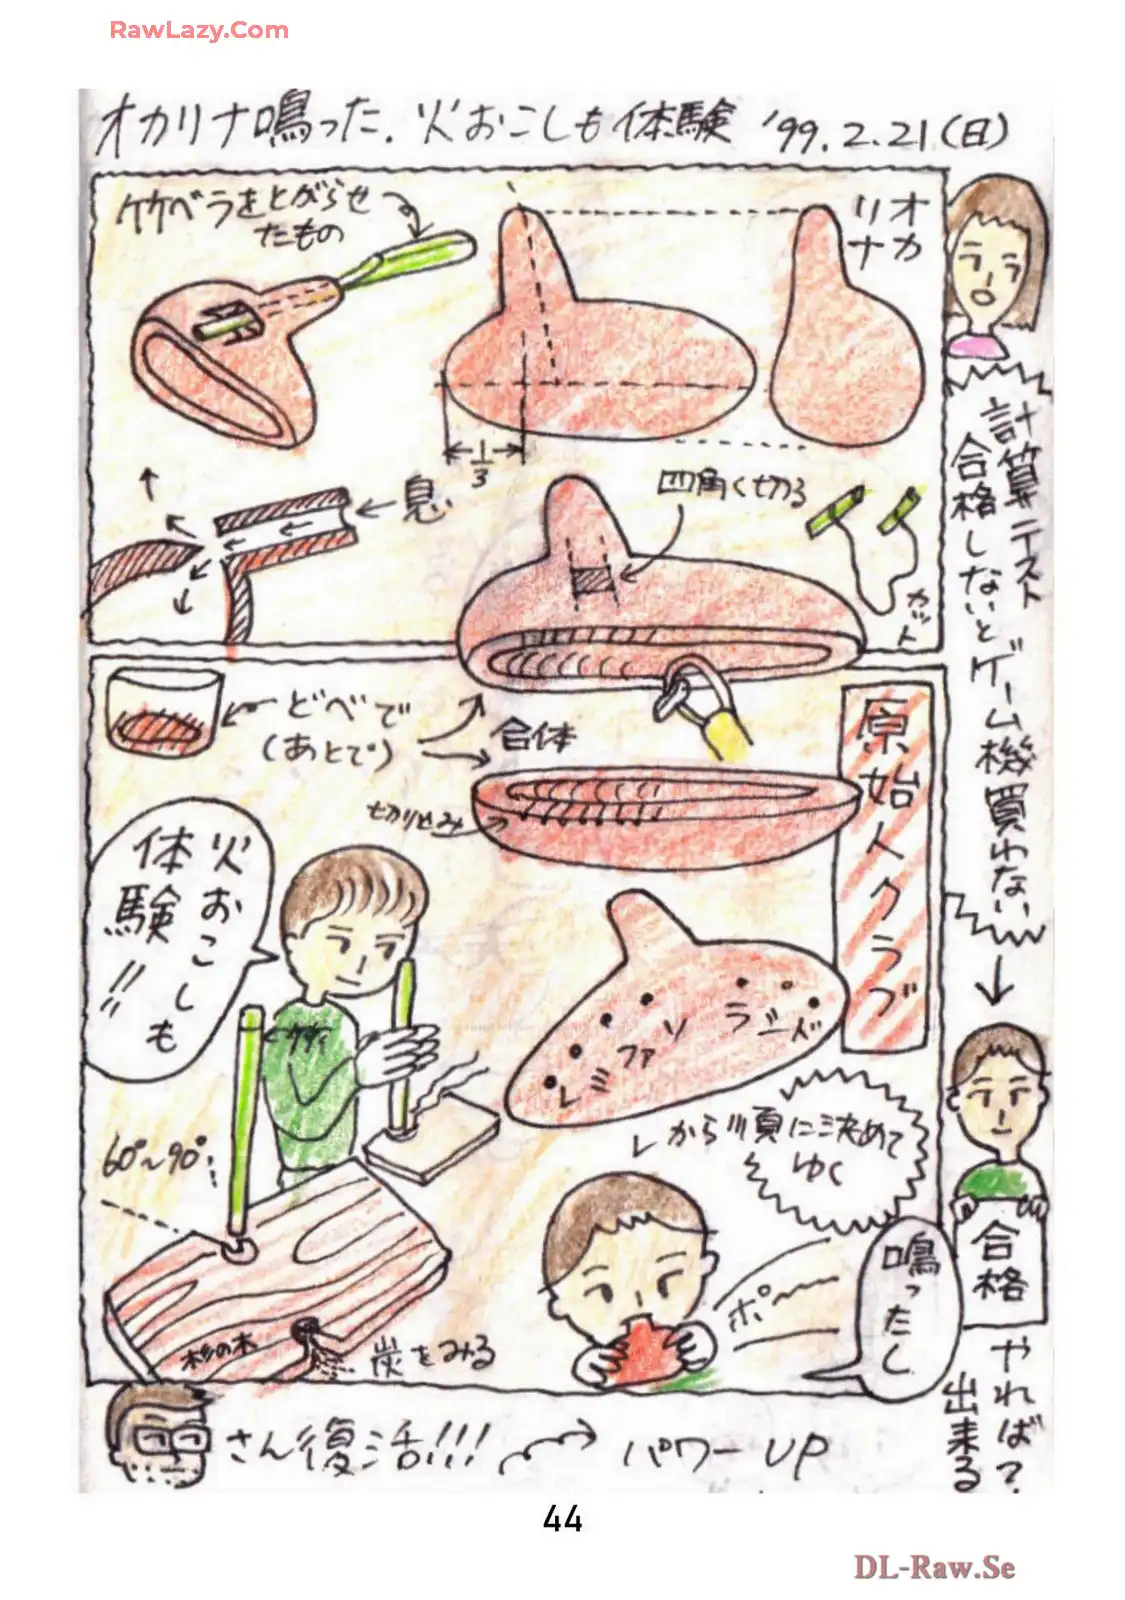 RawLazy.Com
オカリナ鳴った.火おこしも体験 '99.2.21(日)
竹ベラをとがらせ
たもの
オカ
リナ
1/3
息
四角く切る
カット
どべで
(あとで)
合体
切り込み
原始人クラブ
火おこしも
体験!!
ウツギ
60°~90°
杉の木
炭をみる
レ ミ ファ ソ ラ シ ド
レから順に決めて
ゆく
ポ〜
鳴ったし
ララ
計算テスト
合格しないとゲーム機買わない
合格
やれば?
出来る
さん復活!!!
パワーUP
44
DL-Raw.Se